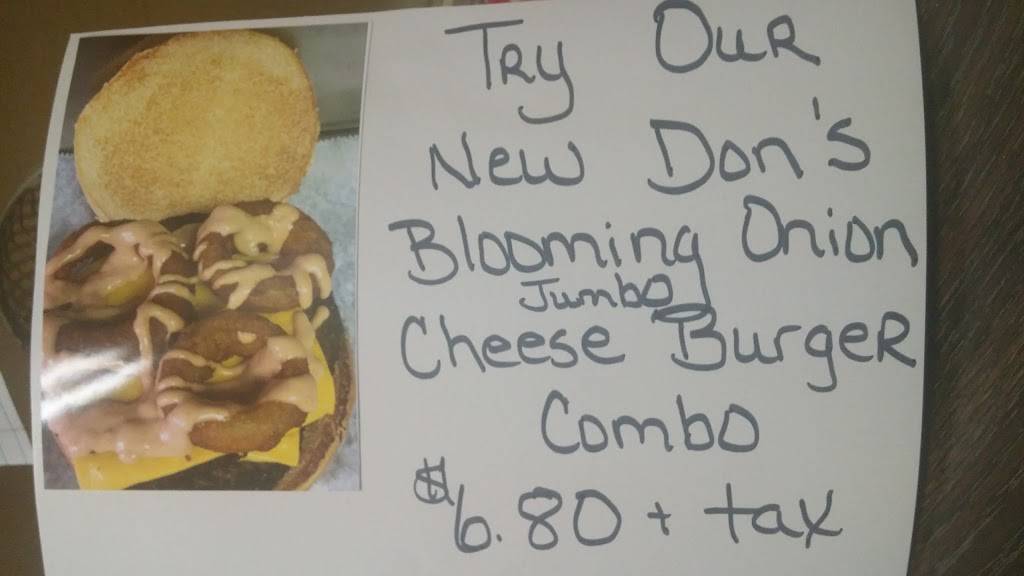 Try Our
New Don's
Blooming Onion
Jumbo
Cheese Burger
Combo
$6.80 + tax